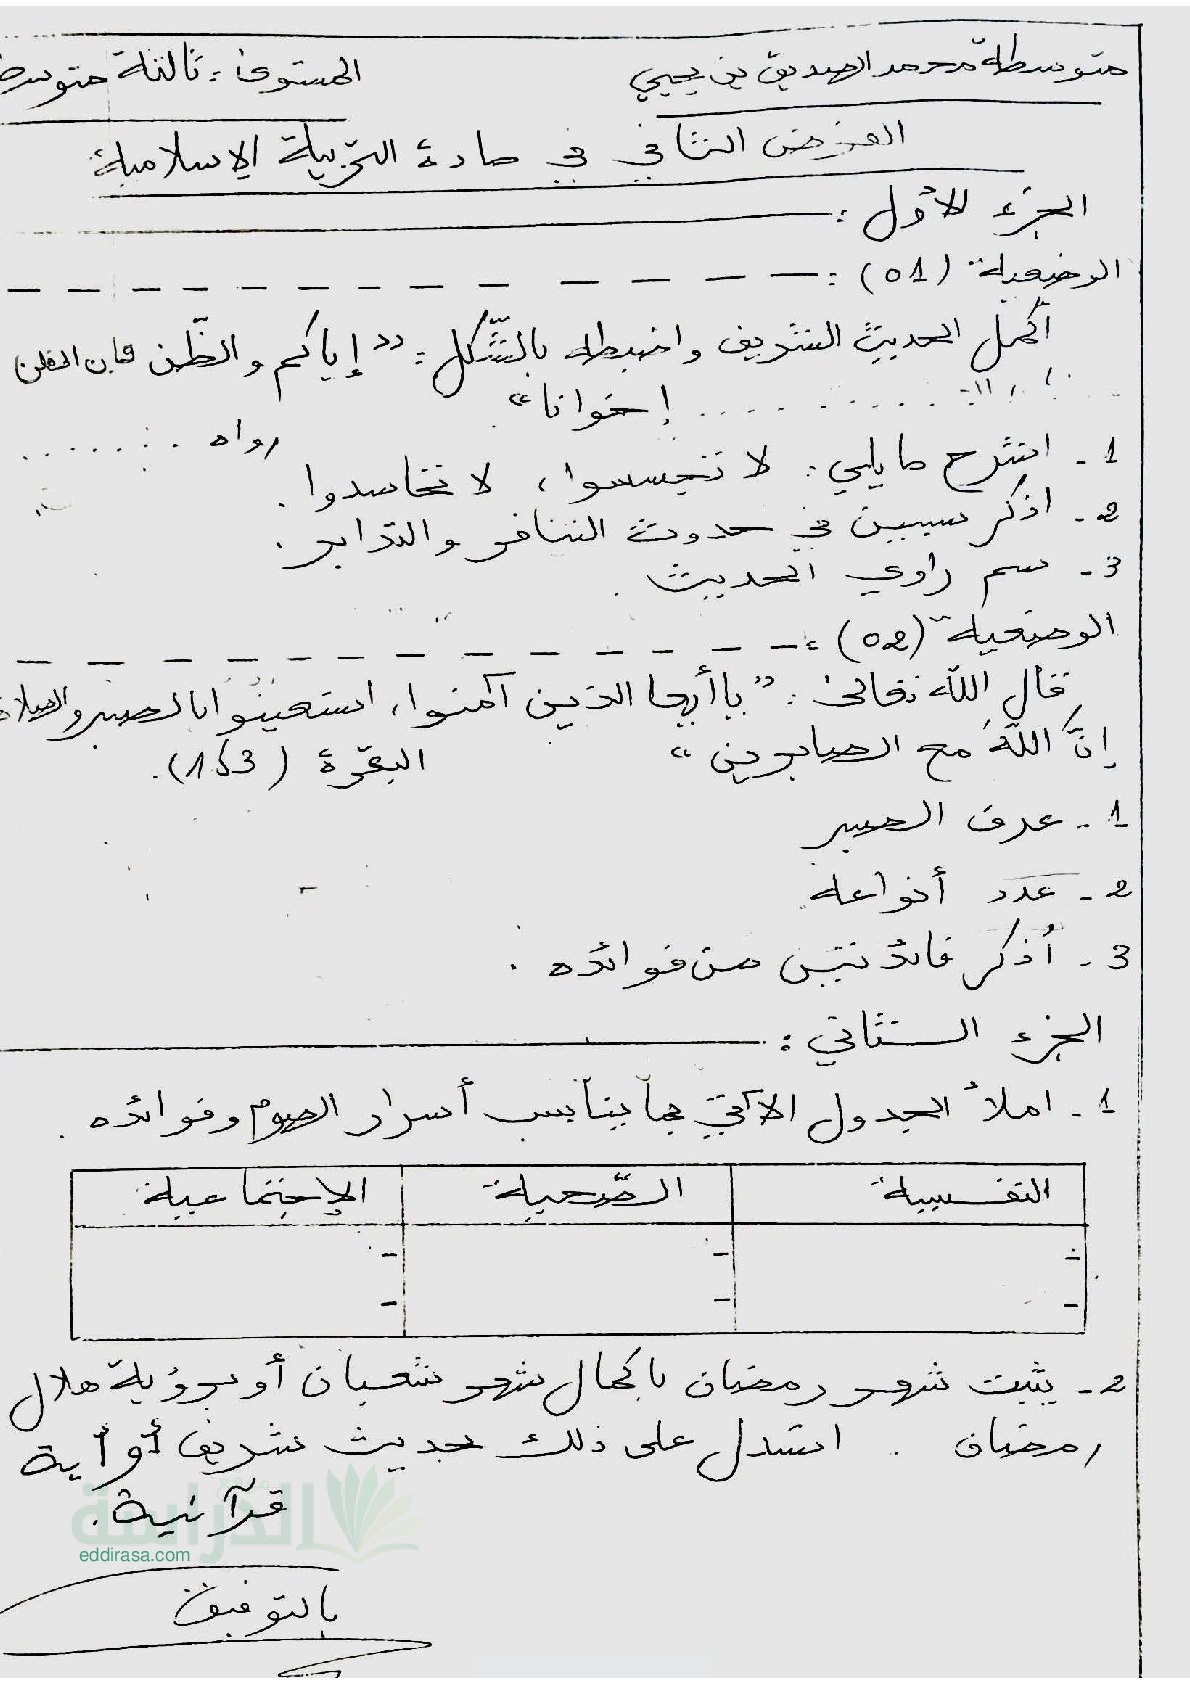 متوسطة محمد الصديق بن يحيي
المستوى: ثالثة متوسط
الفرض الثاني في مادة التربية الإسلامية
الجزء الأول:
الوضعية (01):
أكمل الحديث الشريف واضبطه بالشّكل: "إياكم والظّن فإن الظن
.......... إخوانا"
رواه .......
1- اشرح مايلي: لا تجسسوا، لا تحاسدوا.
2- اذكر سببين في حدوث التنافر والتدابر.
3- سم راوي الحديث.
الوضعية (02):
قال اللّه تعالى: "ياأيها الذين آمنوا، استعينوا بالصبر والصلاة
إنَّ اللّهَ مع الصابرين" البقرة (153).
1- عرف الصبر
2- عدد أنواعه
3- أُذكر فائدتين من فوائده.
الجزء الثاني:
1- املأ الجدول الآتي بما يناسب أسرار الصوم وفوائده.
النفسية الصّحية الإجتماعية
- - -
- - -
2- يثبت شهر رمضان باكمال شهر شعبان أو برؤية هلال
رمضان. استدل على ذلك بحديث شريف أو أية
قرآنية.
الدراسة
eddirasa.com
بالتوفيق